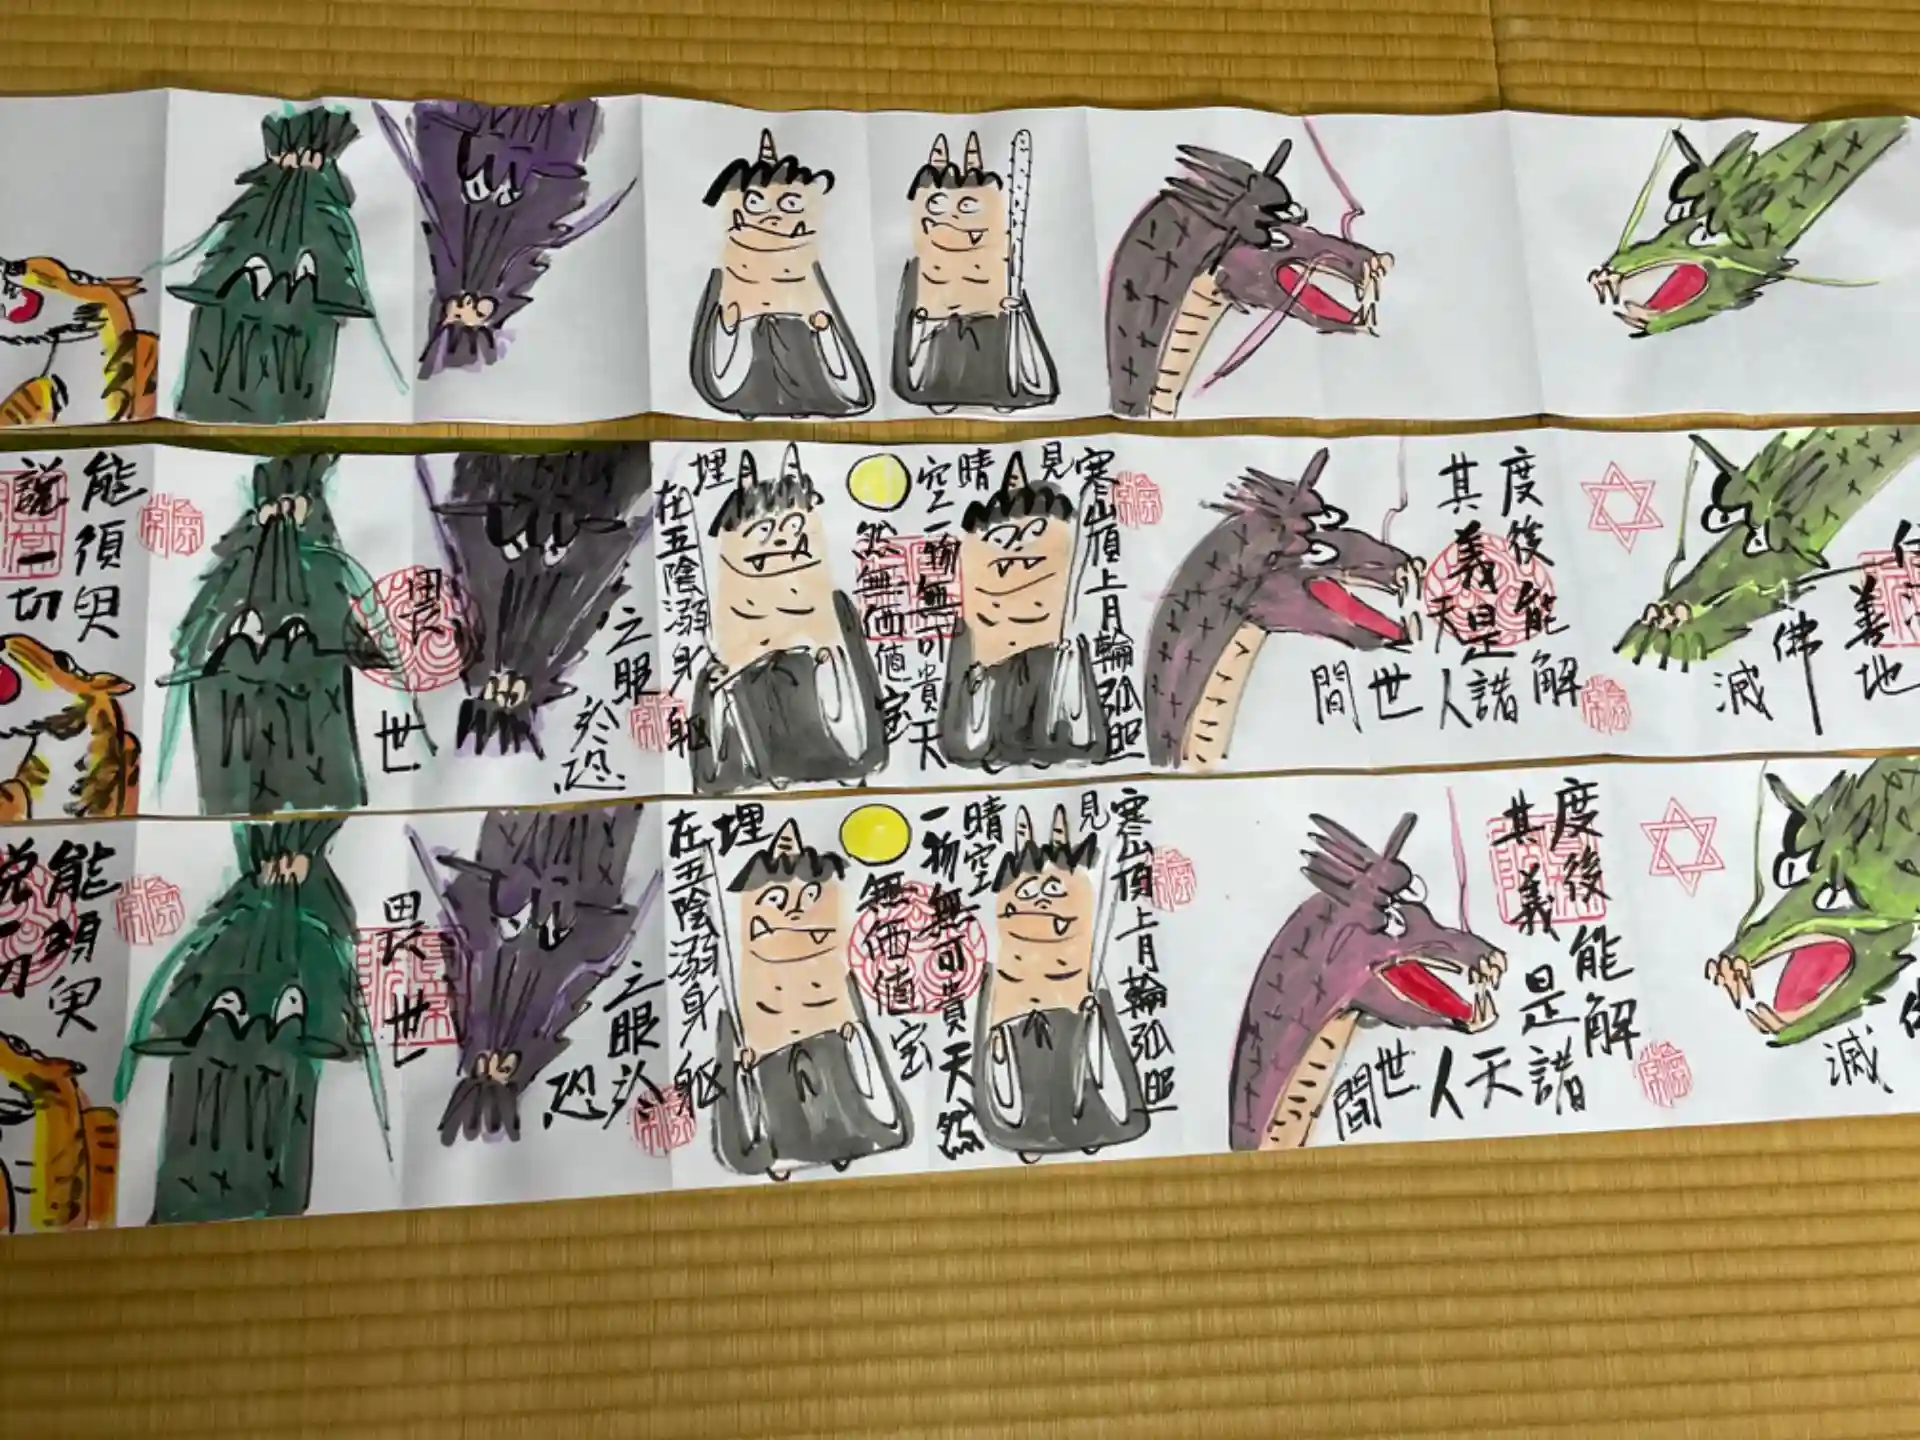 寒山頂上月輪孤照
見晴
空一物無可貴天
然無価値宝
埋
在五陰溺身躯
度後能解
其義是諸
天人世間
佛滅
善地
之眼
於恐
畏
世
能須臾
説一切
寒山頂上月輪孤照
見
晴空
一物無可貴天然
無価値宝
埋
在五陰溺身躯
度後能解
其義是諸
天人世間
滅
之眼於恐
畏世
能須臾